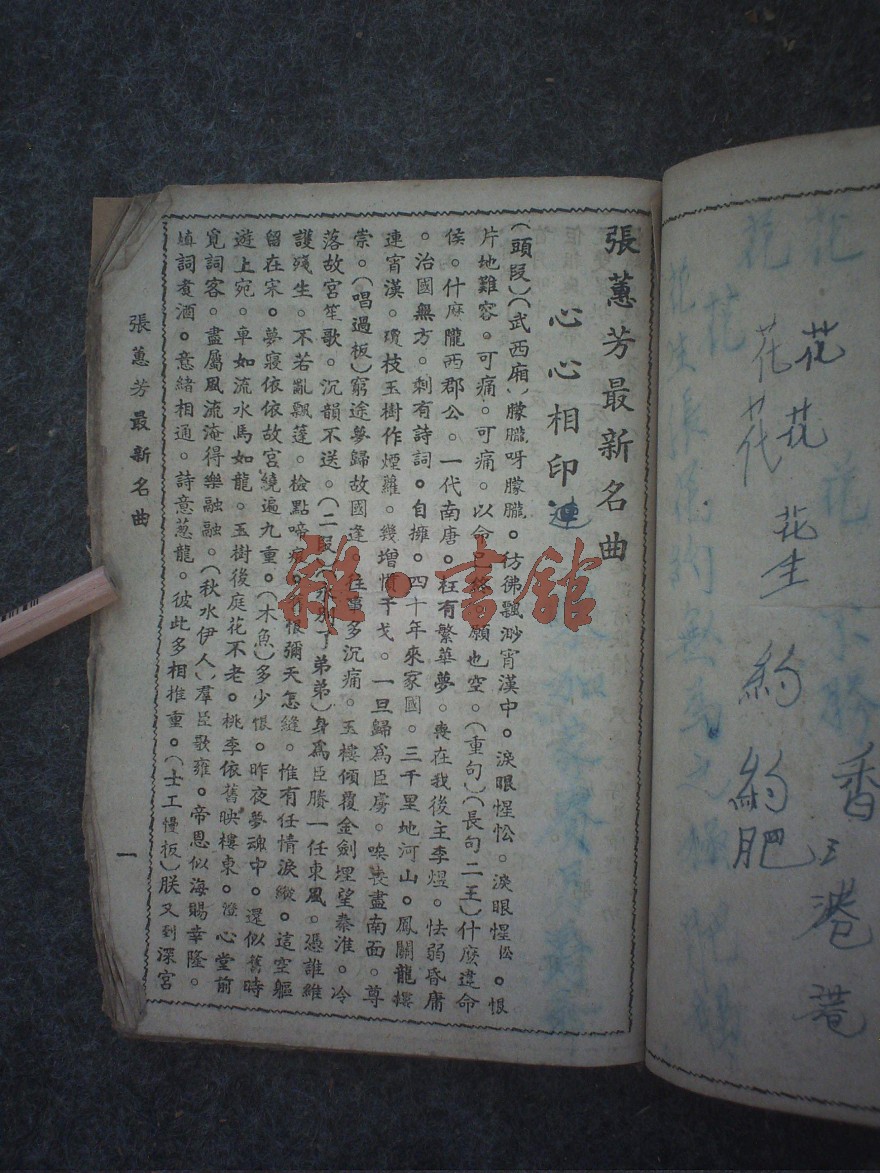 花
花
花
花
花
花
花
花
生
約
約
肥
香
港
港
張蕙芳最新名曲
心心相印
(頭段)(武西廂)朦朧呀朦朧。彷彿飄渺宵漢中。淚眼惺忪。淚眼惺忪。恨
片地難容。可痛。可痛。以命已終願也空。(重句)(長句二王)什麽違命
侯。什麻隴西郡公。一代南唐。枉有繁華夢。喪在我後主李煜。怯弱昏庸
。治國無方。剩有詩詞。自擁。四十年來家國。三千里地河山。鳳閣龍樓
連宵漢。瓊枝玉樹作煙蘿。幾增慣干戈。一旦歸爲臣虜。唉喪盡南面。尊
崇。(唱過板)窮途夢歸故國逢。往事多沉痛。玉樓傾覆金劍埋望秦淮。冷
落故宮笙歌。沉韻不送。(二段)永別了弟弟)身爲臣賸一任東風。憑誰維
護殘生。不若亂飄蓬。檢點啼痕。恨彌天怎縫。惟有任情淚縱。這空軀
留在宋。夢寢依依故宮繞遍九重。(木魚)多少恨。昨夜夢魂中。還似舊時
遊上宛。車如流水馬如龍。玉樹後庭花不老。桃李依舊映樓東。澄心堂前
覓詞客。盡屬風流淹得樂融融。(秋水伊人)羣臣歌雍。帝恩似海賜幸隆。
塡詞煮酒。意緒相通。詩意葱龍。彼此多相推重。(士工慢板)朕又到深宮
張蕙芳最新名曲
一
雜·書館